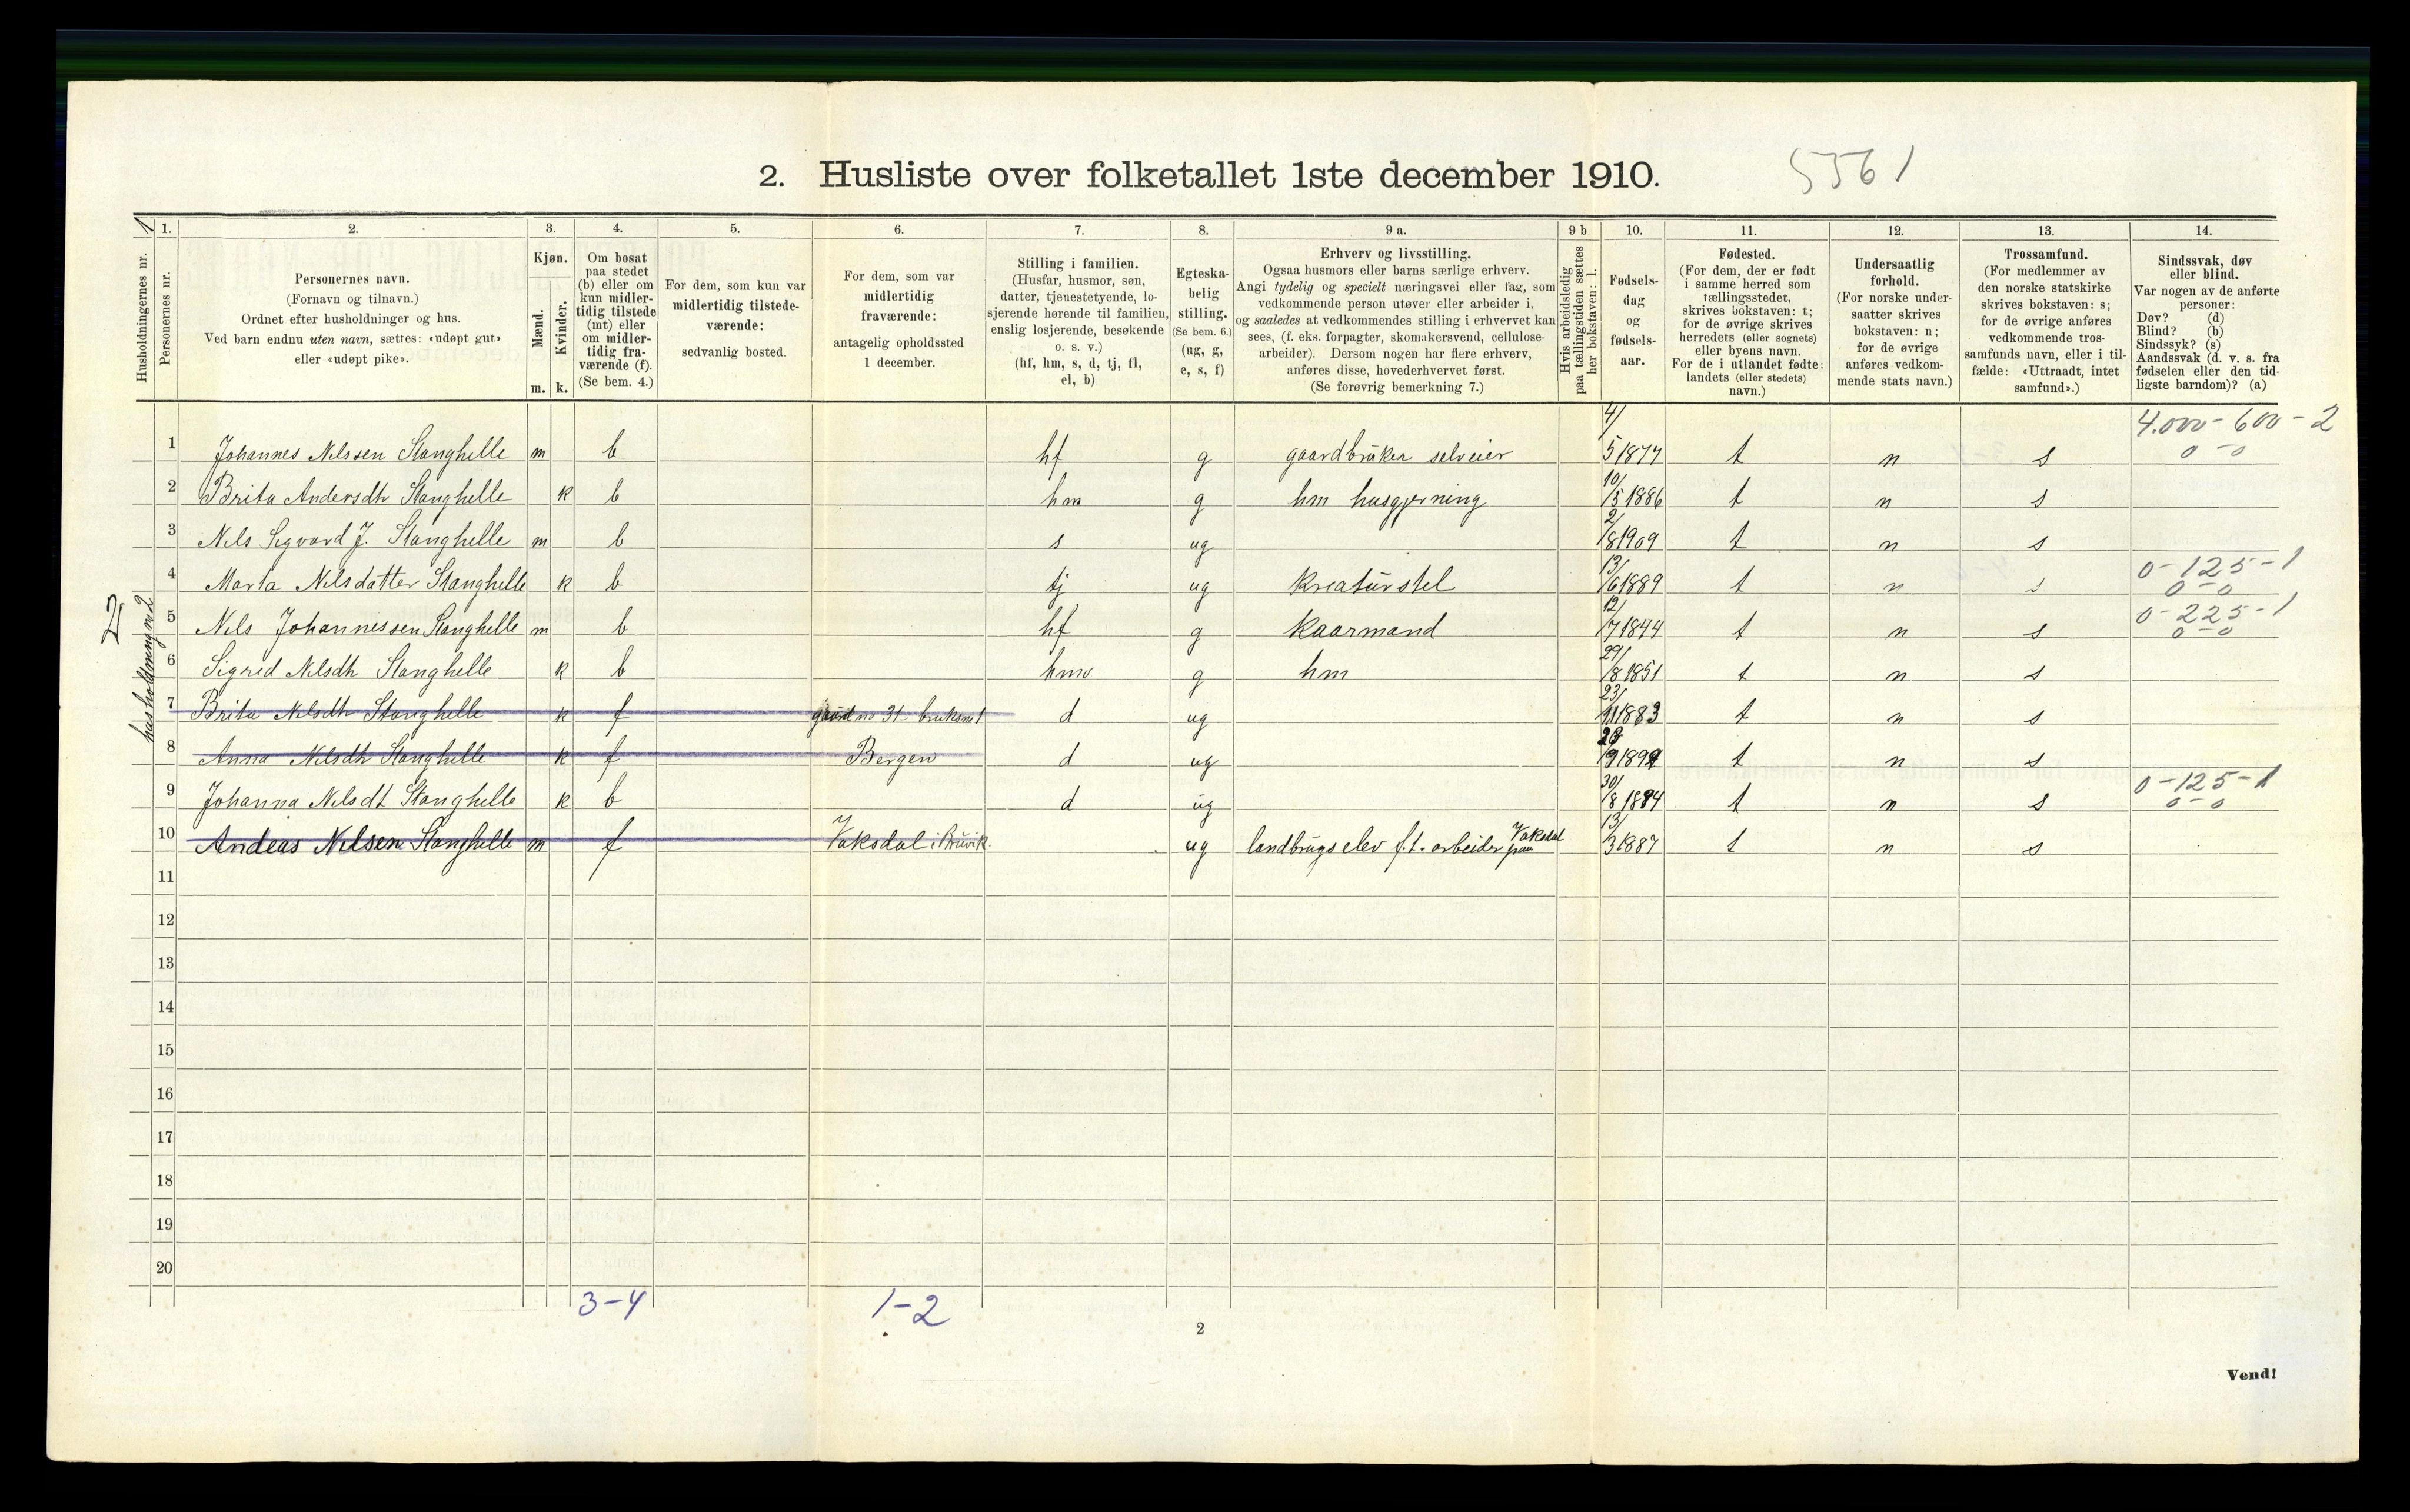 2. Husliste over folketallet 1ste december 1910.
5561
1
1. 2. 3. 4. 5. 6. 7. 8. 9 a. 9 b 10. 11. 12. 13. 14.
Husholdningernes nr.
Personernes nr.
Personernes navn.
(Fornavn og tilnavn.)
Ordnet efter husholdninger og hus.
Ved barn endnu uten navn, sættes: «udøpt gut»
eller «udøpt pike».
Kjøn.
Mænd.
Kvinder.
m. k.
Om bosat
paa stedet
(b) eller om
kun midler-
tidig tilstede
(mt) eller
om midler-
tidig fra-
værende (f).
(Se bem. 4.)
For dem, som kun var
midlertidig tilstede-
værende:
sedvanlig bosted.
For dem, som var
midlertidig
fraværende:
antagelig opholdssted
1 december.
Stilling i familien.
(Husfar, husmor, søn,
datter, tjenestetyende, lo-
sjerende hørende til familien,
enslig losjerende, besøkende
o. s. v.)
(hf, hm, s, d, tj, fl,
el, b)
Egteska-
belig
stilling.
(Se bem. 6.)
(ug, g,
e, s, f)
Erhverv og livsstilling.
Ogsaa husmors eller barns særlige erhverv.
Angi tydelig og specielt næringsvei eller fag, som
vedkommende person utøver eller arbeider i,
og saaledes at vedkommendes stilling i erhvervet kan
sees, (f. eks. forpagter, skomakersvend, cellulose-
arbeider). Dersom nogen har flere erhverv,
anføres disse, hovederhvervet først.
(Se forøvrig bemerkning 7.)
Hvis arbeidsledig
paa tællingstiden sættes
her bokstaven: l.
Fødsels-
dag
og
fødsels-
aar.
Fødested.
(For dem, der er født
i samme herred som
tællingsstedet,
skrives bokstaven: t;
for de øvrige skrives
herredets (eller sognets)
eller byens navn.
For de i utlandet fødte:
landets (eller stedets)
navn.)
Undersaatlig
forhold.
(For norske under-
saatter skrives
bokstaven: n;
for de øvrige
anføres vedkom-
mende stats navn.)
Trossamfund.
(For medlemmer av
den norske statskirke
skrives bokstaven: s;
for de øvrige anføres
vedkommende tros-
samfunds navn, eller i til-
fælde: «Uttraadt, intet
samfund».)
Sindssvak, døv
eller blind.
Var nogen av de anførte
personer:
Døv? (d)
Blind? (b)
Sindssyk? (s)
Aandssvak (d. v. s. fra
fødselen eller den tid-
ligste barndom)? (a)
1 Johannes Nilssen Stanghelle m b hf g gaardbruker selveier 4/5 1877 t n s 4.000-600-2 0-0
2 Brita Andersdtr Stanghelle k b hm g hm husgjerning 10/5 1886 t n s
3 Nils Sigvard J. Stanghelle m b s ug 2/8 1909 t n s
4 Marta Nilsdatter Stanghelle k b tj ug Kreaturstel 13/6 1889 t n s 0-125-1 0-0
2 husholdning nr 2
5 Nils Johannessen Stanghelle m b hf g Kaarmand 12/7 1844 t n s 0-225-1 0-0
6 Sigrid Nilsdtr Stanghelle k b hm g hm 29/8 1851 t n s
7 Brita Nilsdtr Stanghelle k f gaard no 31 bruksno 1 d ug 23/11 1883 t n s
8 Anna Nilsdtr Stanghelle k f Bergen d ug t n s
9 Johanna Nilsdt Stanghelle k b d ug 30/8 1894 t n s 0-125-1 0-0
10 Andeas Nilsen Stanghelle m f Vaksdal i Bruvik. ug landbrugselev f.t. arbeider paa Vaksdal 13/3 1887 t n s
11
12
13
14
15
16
17
18
19
20
3-4 1-2
2
Vend!